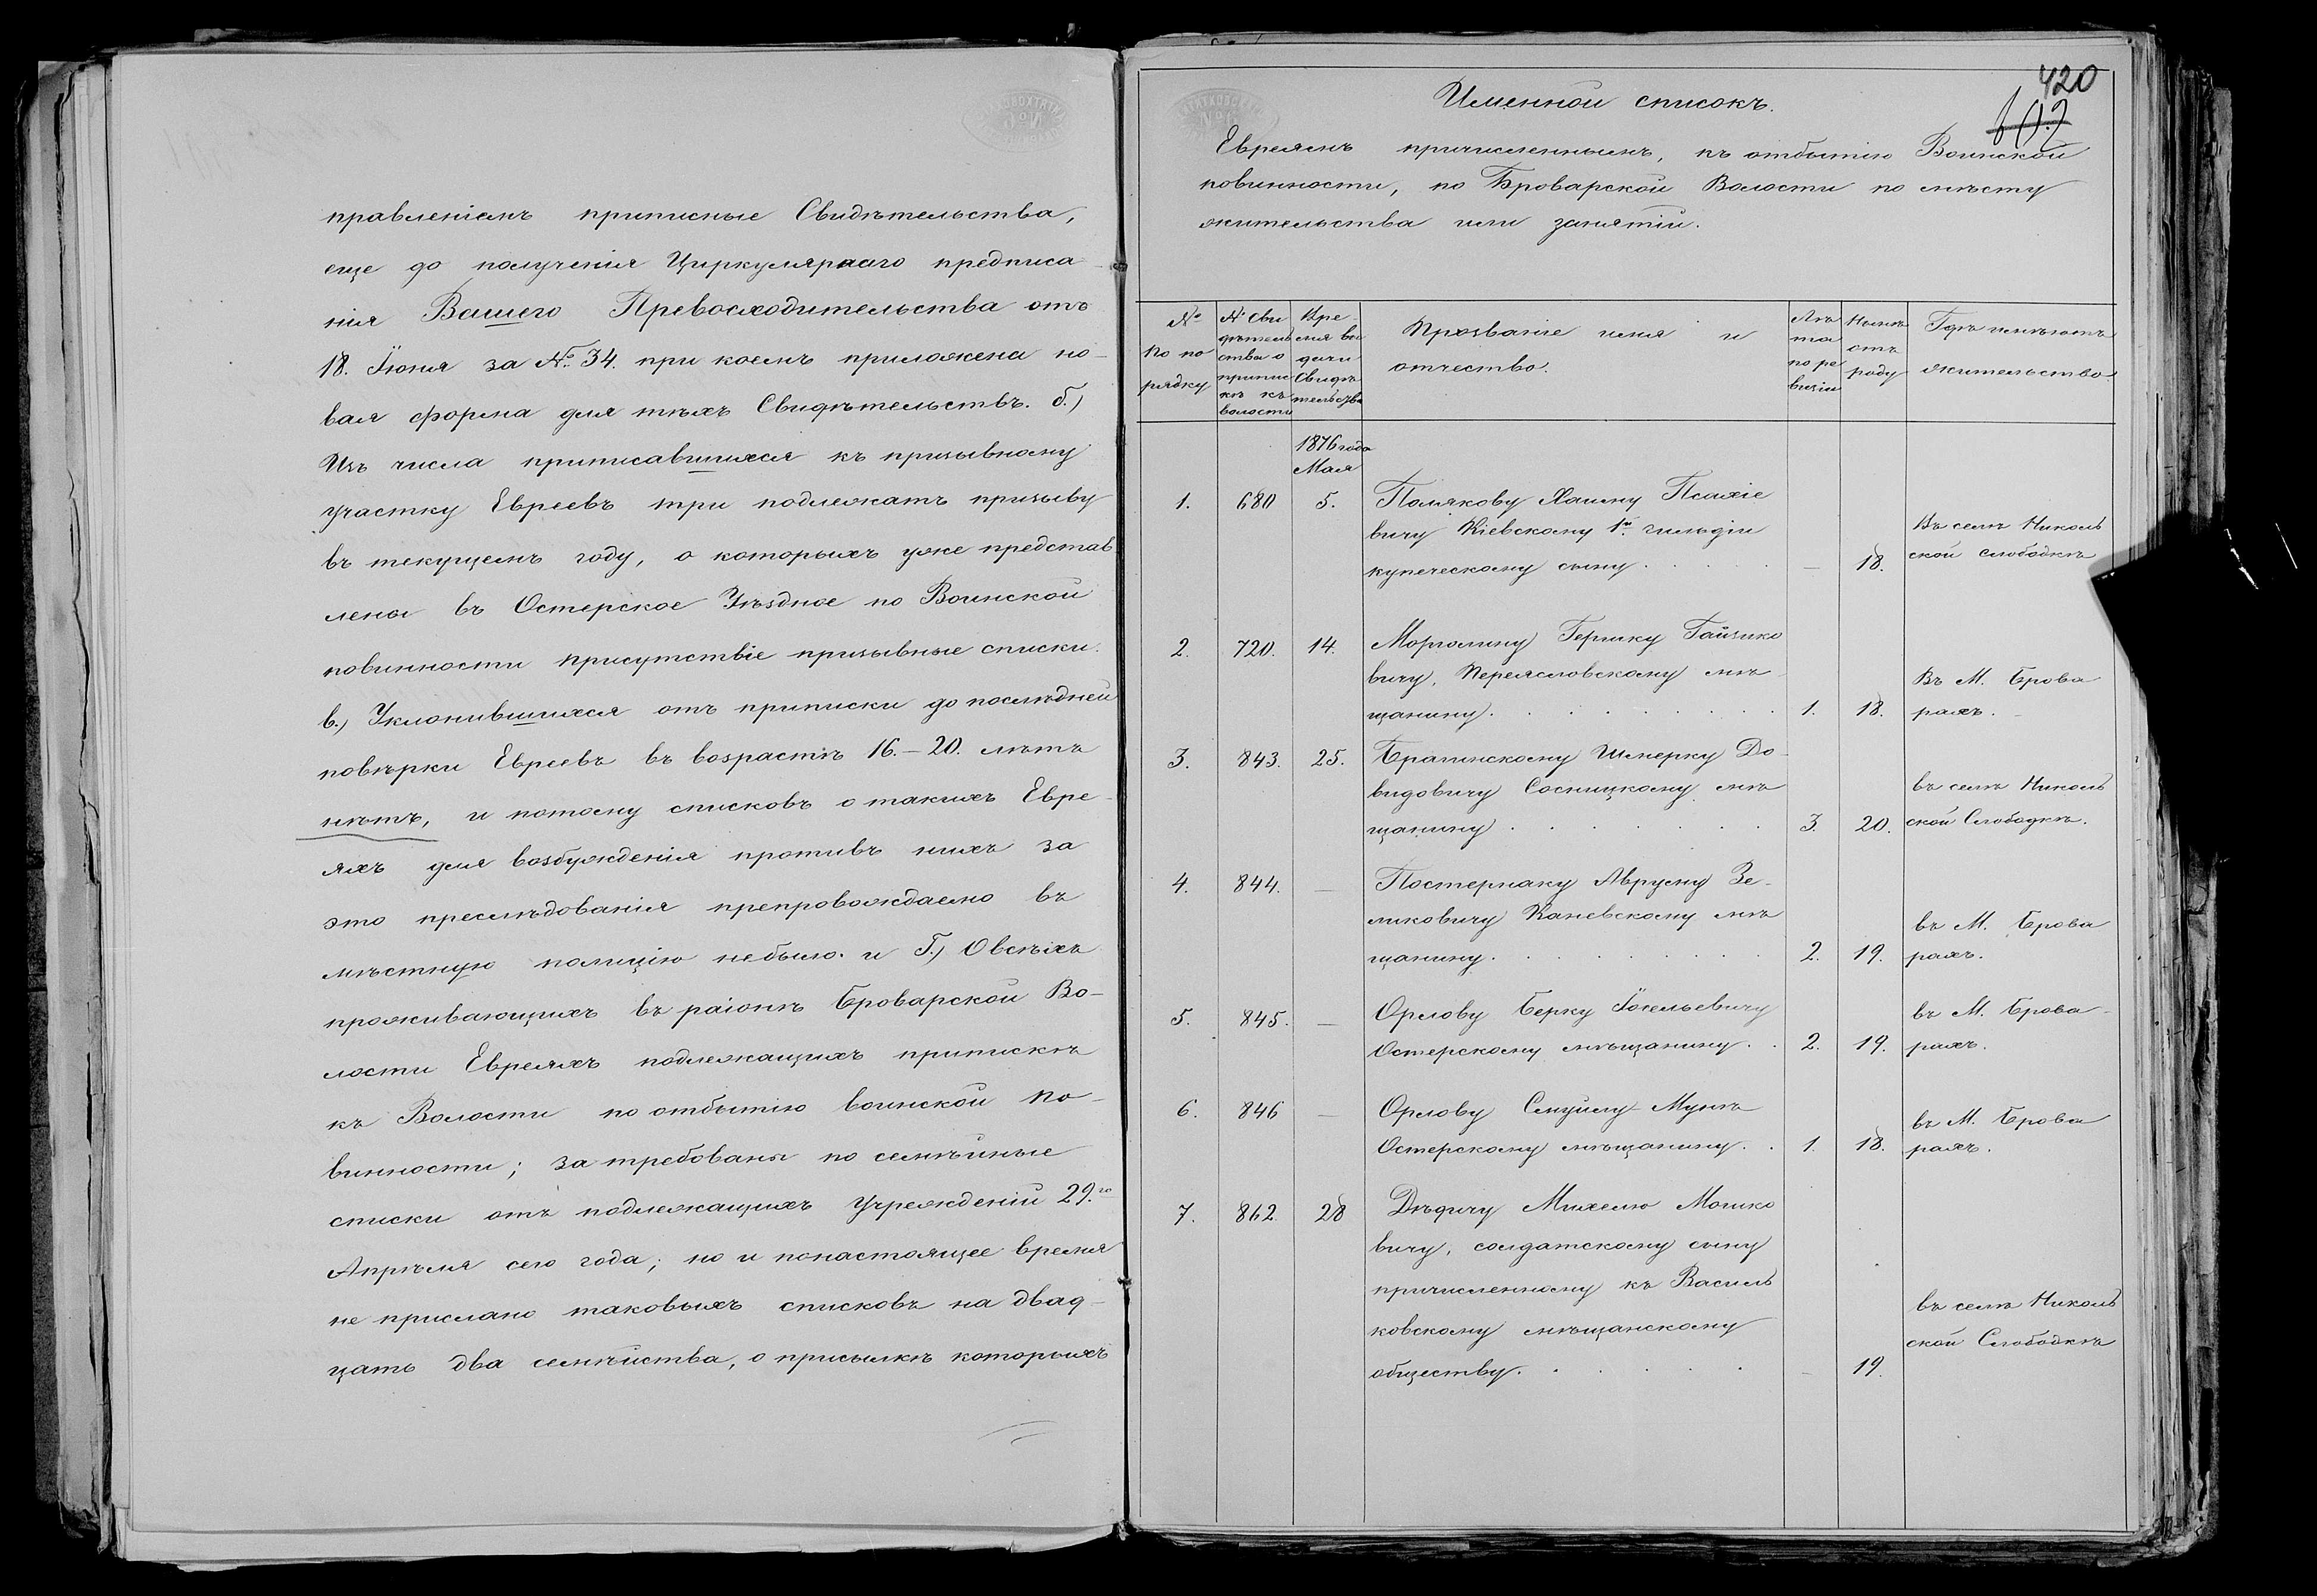 правленіемъ приписные Свидѣтельства,
еще до полученія Циркулярнаго предписа
нія Вашего Превосходительства отъ
18. Іюня за № 34. при коемъ приложена но-
вая форма для тѣхъ Свидѣтельствъ. б.)
Изъ числа приписавшихся къ призывному
участку Евреевъ три подлежатъ призыву
въ текущемъ году, о которыхъ уже представ
лены въ Остерское Уѣздное по Воинской
повинности присутствіе призывные списки.
в.) Уклонившихся отъ приписки до послѣдней
повѣрки Евреевъ въ возрастѣ 16.-20. лѣтъ
нѣтъ, и потому списковъ о такихъ Евре-
яхъ для возбужденія противъ нихъ за
это преслѣдованія препровождаемо въ
мѣстную полицію небыло. и Г.) Овсѣхъ
проживающихъ въ раіонѣ Броварской Во-
лости Евреяхъ подлежащихъ припискѣ
къ Волости по отбытію воинской по-
винности; затребованы посемѣйные
списки отъ подлежащихъ Учрежденій 29.го
Апрѣля сего года; но и понастоящее время
не прислано таковыхъ списковъ на двад-
цать два семѣйства, о присылкѣ которыхъ
420
Именной списокъ.
Евреямъ причисленнымъ, къ отбытію Воинской
повинности, по Броварской Волости по мѣсту
жительства или занятій.
№ По порядку | № Свидѣтельства о припискѣ къ волости | Время выдачи Свидѣтельства | Прозваніе имя и отчество. | Лѣта по ревизіи | Нынѣ отъ роду | Гдѣ имѣютъ жительство.
1876 года
Мая
1. 680 5. Полякову Хаиму Псахіе
вичу Кіевскому 1й гильдіи
купеческому сыну. — 18. Въ селѣ Николь
ской слободкѣ
2. 720. 14. Морголину Гершку Гайзико
вичу, Переясловскому мѣ
щанину. 1. 18. Въ М. Брова
рахъ.
3. 843. 25. Брагинскому Шмерку До-
видовичу Сосницкому мѣ
щанину. 3. 20. въ селѣ Николь
ской Слободкѣ.
4. 844. — Постернаку Аврумy Зе-
ликовичу Каневскому мѣ
щанину. 2. 19. въ М. Брова
рахъ.
5. 845. — Орлову Берку Іосельевичу
Остерскому мѣщанину. 2. 19. въ М. Брова-
рахъ.
6. 846 — Орлову Смуйлу-Мункѣ
Остерскому мѣщанину. 1. 18. въ М. Брова
рахъ.
7. 862. 28 Дѣдичу Михелю Мошко
вичу, солдатскому сыну
причисленному къ Василь
ковскому мѣщанскому
обществу. — 19. въ селѣ Николь
ской Слободкѣ